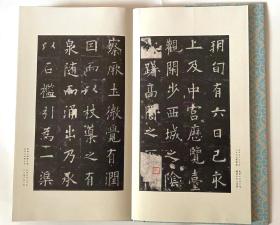 朔旬有六日己亥
上及中宮歷覽臺
觀閑步西城之陰
躇高閣之下
察厥土微覺有潤
因而以杖導之有
泉隨而涌出乃承
以石檻引為一渠